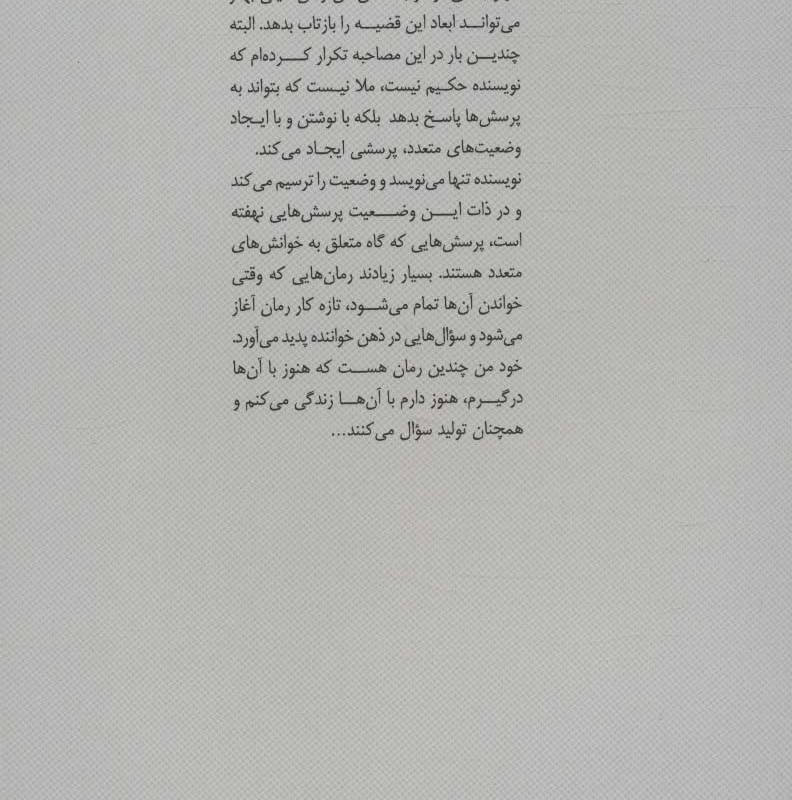 می‌توانـد ابعاد این قضیـه را بازتاب بدهد. البته
چندیـن بار در این مصاحبه تکرار کـرده‌ام که
نویسنده حکیم نیست، ملا نیست که بتواند به
پرسش‌ها پاسخ بدهد بلکه با نوشتن و با ایجاد
وضعیت‌های متعدد، پرسشی ایجاد می‌کند.
نویسنده تنها می‌نویسد و وضعیت را ترسیم می‌کند
و در ذات ایـن وضـعیت پرسش‌هایی نهفته
است، پرسش‌هایی که گاه متعلق به خوانش‌های
متعدد هستند. بسیار زیادند رمان‌هایی که وقتی
خواندن آن‌ها تمام می‌شـود، تازه کار رمان آغاز
می‌شود و سؤال‌هایی در ذهن خواننده پدید می‌آورد.
خود من چندین رمان هسـت که هنوز با آن‌ها
درگیـرم، هنوز دارم با آن‌هـا زندگی می‌کنم و
همچنان تولید سؤال می‌کنند...